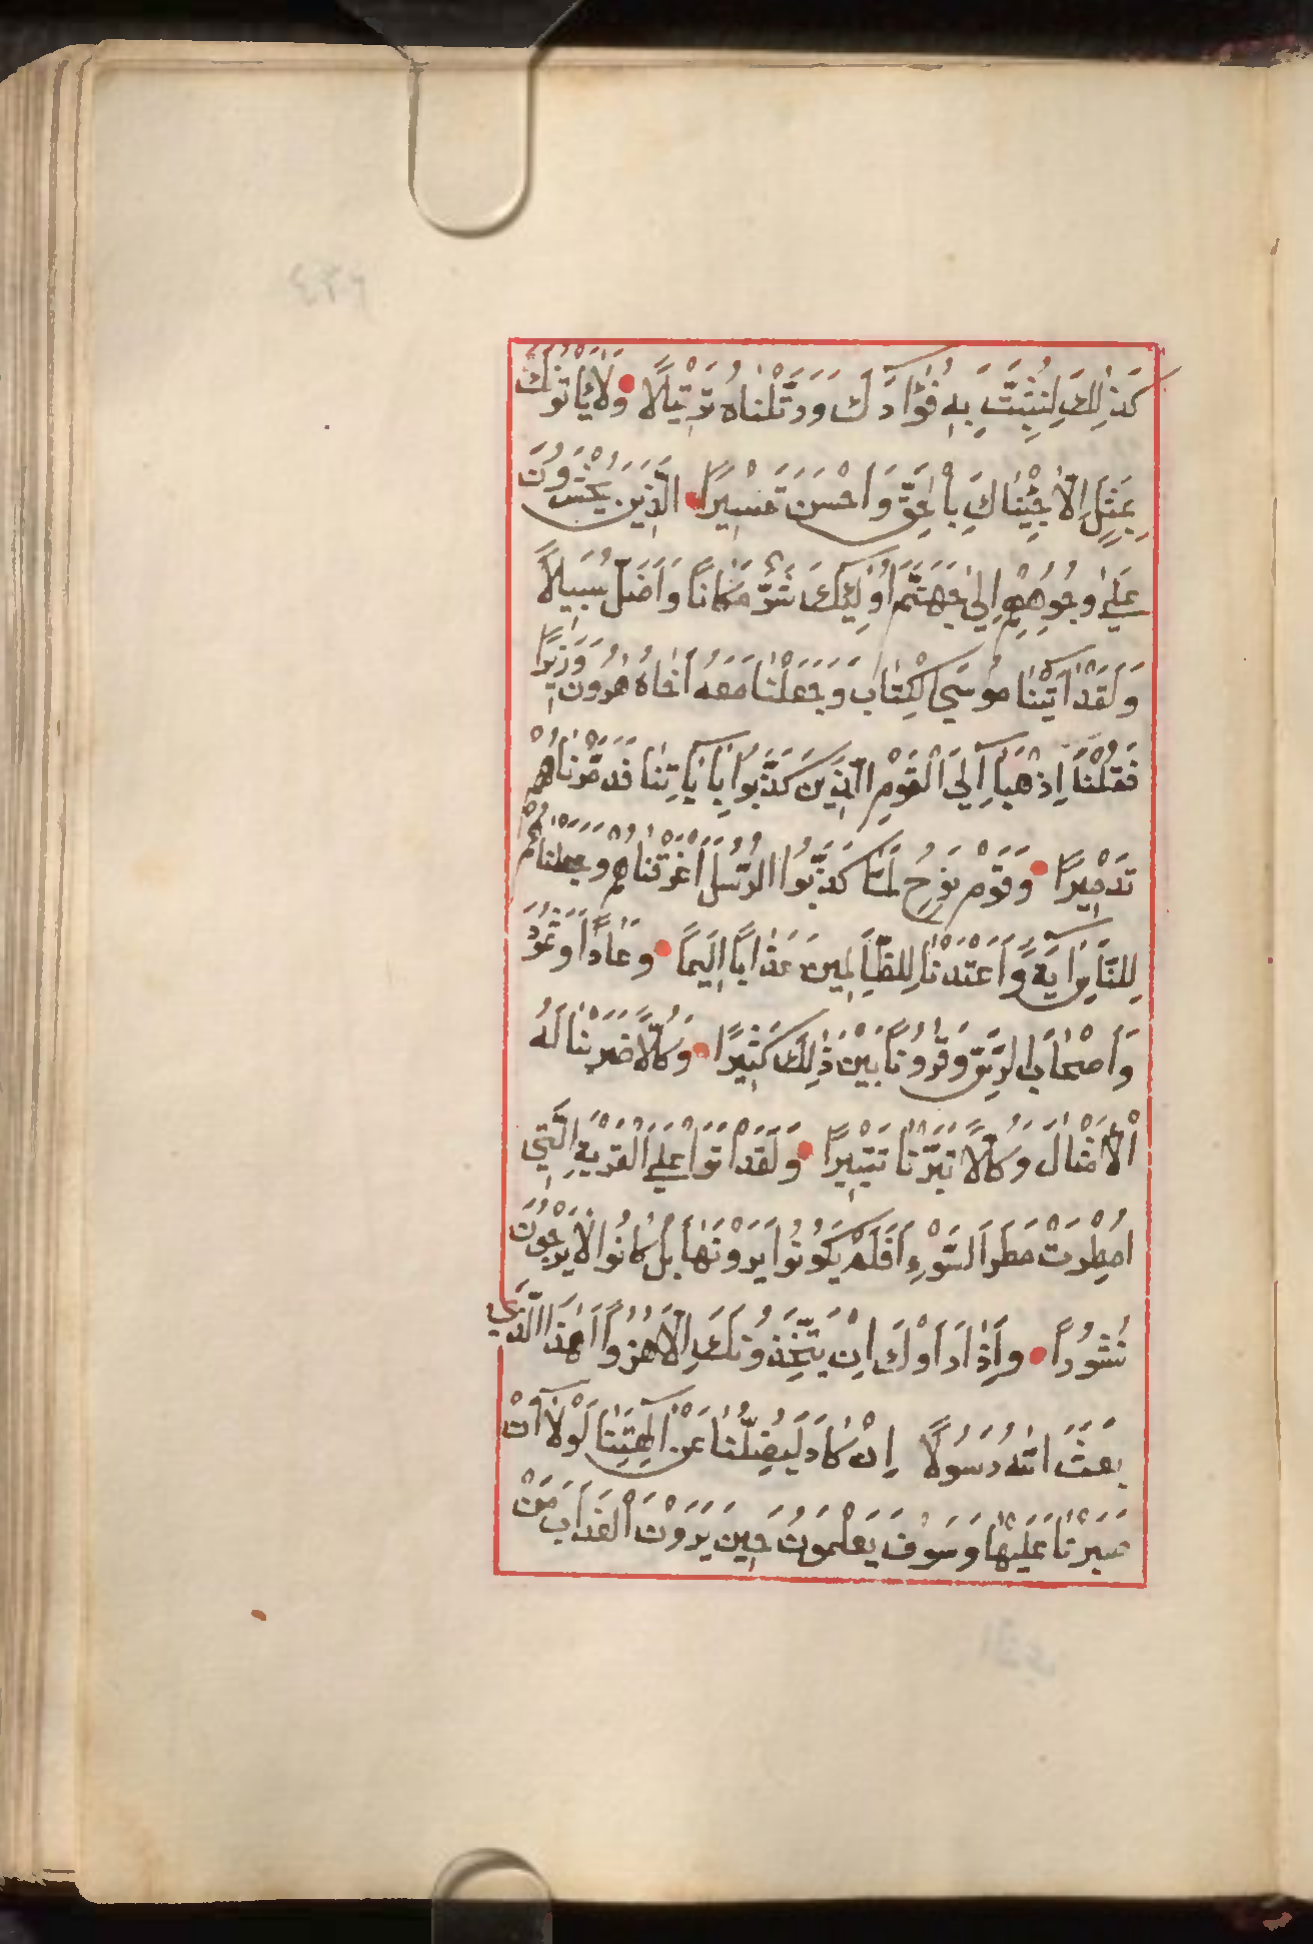 كَذٰلِكَ لِنُثَبِّتَ بِهِ فُؤٰادَكَ وَرَتَّلْنٰاهُ تَرْتٖيلًا وَلٰا يَأْتُونَكَ
بِمَثَلٍ اِلّٰا جِئْنٰاكَ بِالْحَقِّ وَاَحْسَنَ تَفْسٖيرًا الَّذٖينَ يُحْشَرُونَ
عَلىٰ وُجُوهِهِمْ اِلىٰ جَهَنَّمَ اُولٰئِكَ شَرٌّ مَكٰانًا وَاَضَلُّ سَبٖيلًا
وَلَقَدْ اٰتَيْنٰا مُوسَى الْكِتٰابَ وَجَعَلْنٰا مَعَهُ اَخٰاهُ هٰرُونَ وَزٖيرًا
فَقُلْنَا اِذْهَبٰا اِلَى الْقَوْمِ الَّذٖينَ كَذَّبُوا بِاٰيٰاتِنٰا فَدَمَّرْنٰاهُمْ
تَدْمٖيرًا وَقَوْمَ نُوحٍ لَمّٰا كَذَّبُوا الرُّسُلَ اَغْرَقْنٰاهُمْ وَجَعَلْنٰاهُمْ
لِلنّٰاسِ اٰيَةً وَاَعْتَدْنٰا لِلظّٰالِمٖينَ عَذٰابًا اَلٖيمًا وَعٰادًا وَثَمُودَ
وَاَصْحٰابَ الرَّسِّ وَقُرُونًا بَيْنَ ذٰلِكَ كَثٖيرًا وَكُلًّا ضَرَبْنٰا لَهُ
الْاَمْثٰالَ وَكُلًّا تَبَّرْنٰا تَتْبٖيرًا وَلَقَدْ اَتَوْا عَلَى الْقَرْيَةِ الَّتٖي
اُمْطِرَتْ مَطَرَ السَّوْءِ اَفَلَمْ يَكُونُوا يَرَوْنَهٰا بَلْ كٰانُوا لٰا يَرْجُونَ
نُشُورًا وَاِذٰا رَاَوْكَ اِنْ يَتَّخِذُونَكَ اِلّٰا هُزُوًا اَهٰذَا الَّذٖي
بَعَثَ اللّٰهُ رَسُولًا اِنْ كٰادَ لَيُضِلُّنٰا عَنْ اٰلِهَتِنٰا لَوْلٰا اَنْ
صَبَرْنٰا عَلَيْهٰا وَسَوْفَ يَعْلَمُونَ حٖينَ يَرَوْنَ الْعَذٰابَ مَنْ